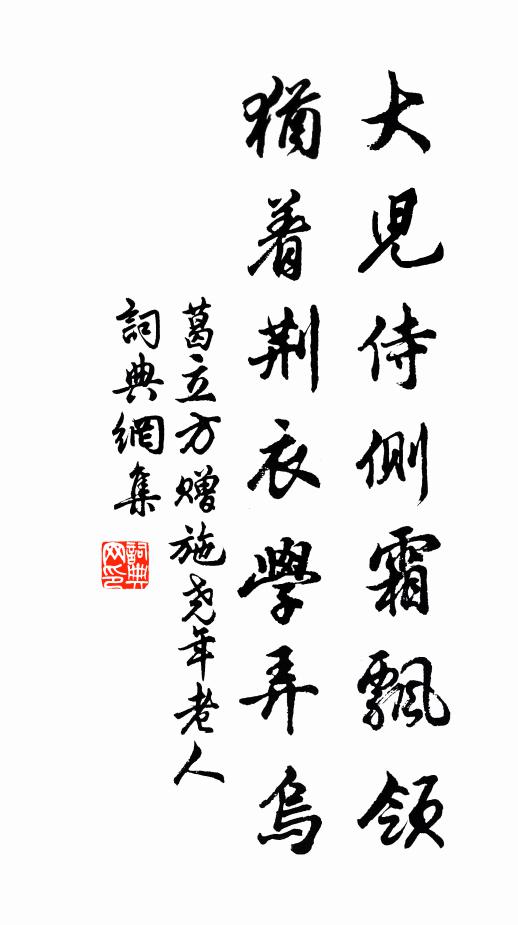 大児侍側霜飄領
猶着荆衣學弄烏
葛立方贈施尧年老人
詞典網集
詞典
网印